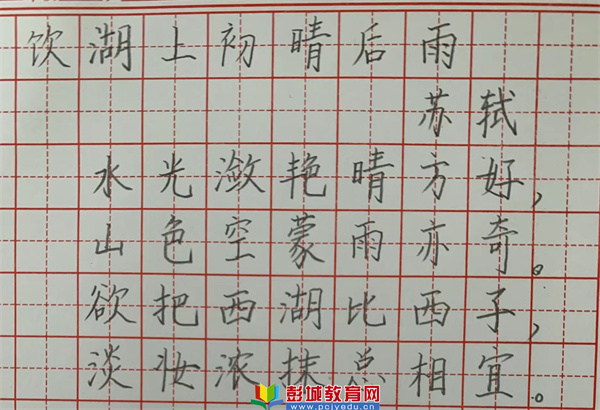 饮湖上初晴后雨
苏轼
水光潋艳晴方好，
山色空蒙雨亦奇。
欲把西湖比西子，
淡妆浓抹总相宜。
彭城教育网
www.pcjyedu.cn